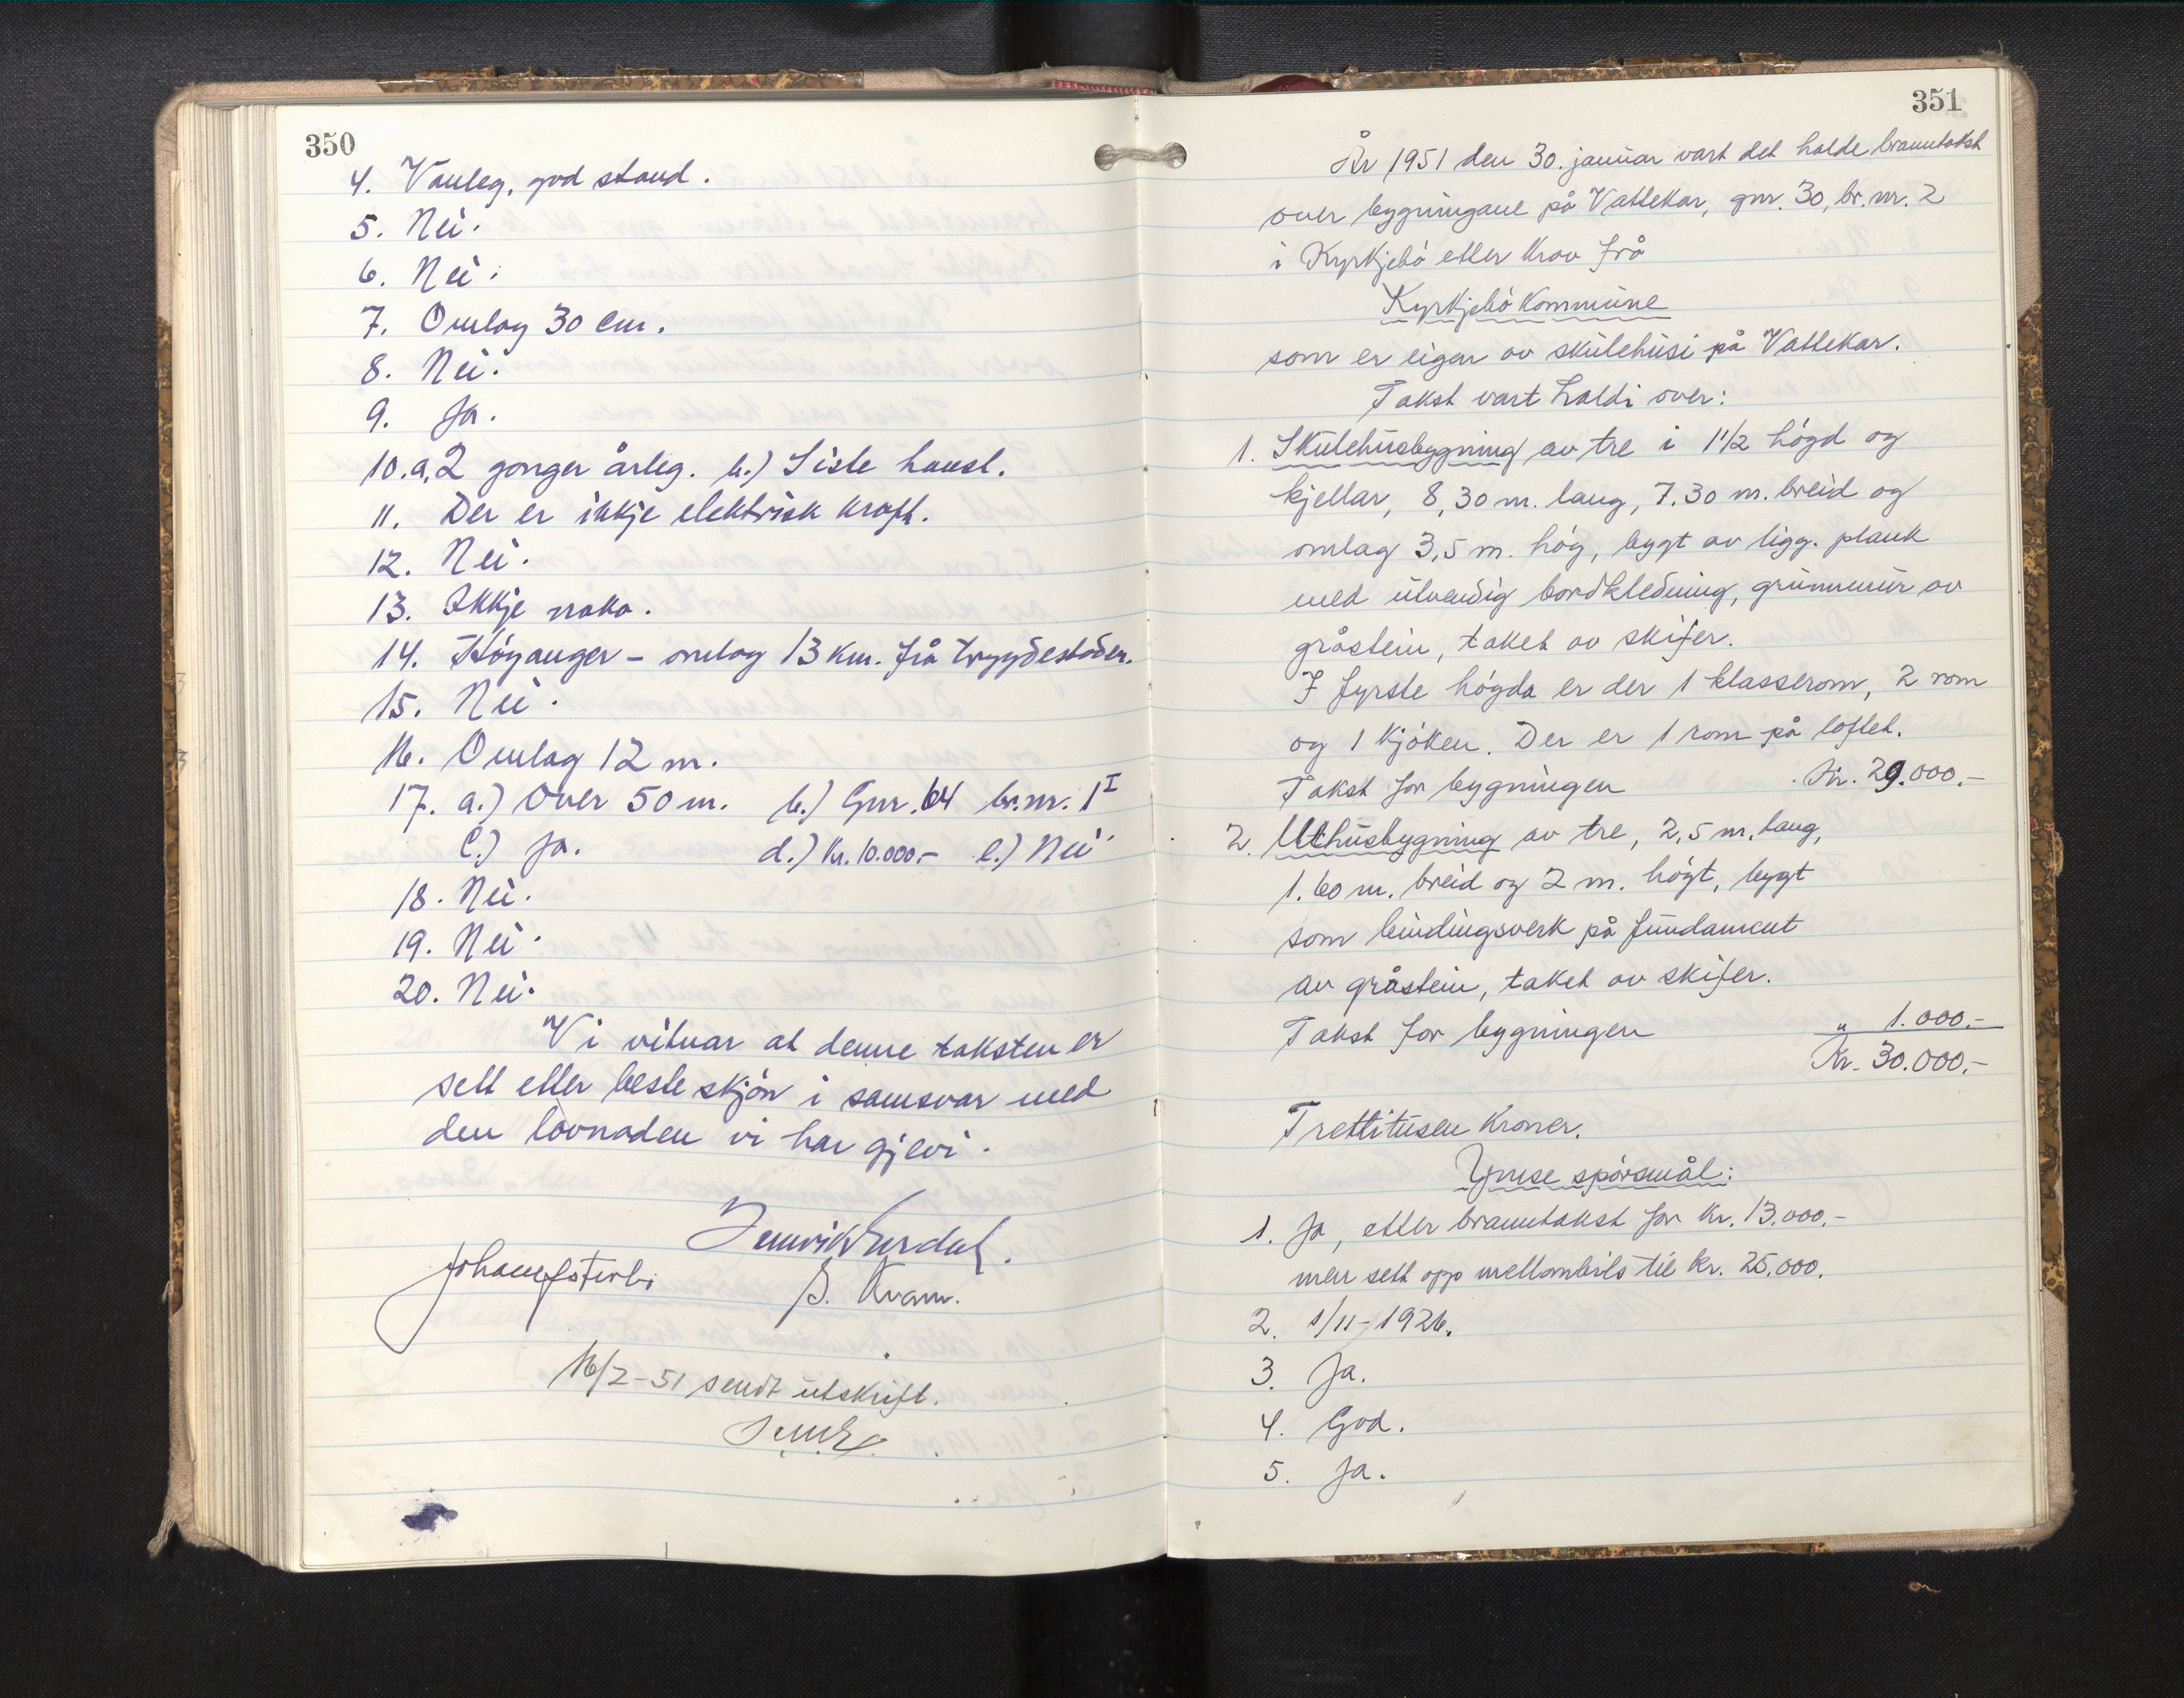 350
4. Vanleg, god stand.
5. Nei.
6. Nei.
7. Omlag 30 cm.
8. Nei.
9. Ja.
10. a, 2 gonger årleg. b.) Siste haust.
11. Der er ikkje elektrisk kraft.
12. Nei.
13. Ikkje noko.
14. Höyanger - omlag 13 km. frå trygdestaden.
15. Nei.
16. Omlag 12 m.
17. a.) Over 50 m. b.) Gnr. 64 br.nr. 1 I
c.) Ja. d.) Kr. 10.000.- e.) Nei
18. Nei.
19. Nei.
20. Nei.
Vi vitnar at denne taksten er
sett etter beste skjön i samsvar med
den lovnaden vi har gjevi.
S. Kvam.
16/2-51 sendt utskrift.
351
År 1951 den 30. januar vart det halde branntakst
over bygningane på Vattekar, gnr. 30, br. nr. 2
i Kyrkjebö etter krav frå
Kyrkjebö kommune
som er eigar av skulehusi på Vattekar.
Takst vart haldi over:
1. Skulehusbygning av tre i 1 1/2 högd og
kjellar, 8,30 m. lang, 7.30 m. breid og
omlag 3,5 m. hög, bygt av ligg. plank
med utvendig bordkledning, grunnmur av
gråstein, taket av skifer.
I fyrste högda er der 1 klasserom, 2 rom
og 1 kjöken. Der er 1 rom på loftet.
Takst for bygningen Kr. 29.000.-
2. Uthusbygning av tre, 2,5 m. lang,
1.60 m. breid og 2 m. högt, bygt
som bindingsverk på fundament
av gråstein, taket av skifer.
Takst for bygningen " 1.000.-
Kr. 30.000.-
Trettitusen kroner.
Ymse spörsmål:
1. Ja, etter branntakst for kr. 13.000.-
men sett opp mellombils til kr. 25.000.
2. 1/11-1926.
3. Ja.
4. God.
5. Ja.